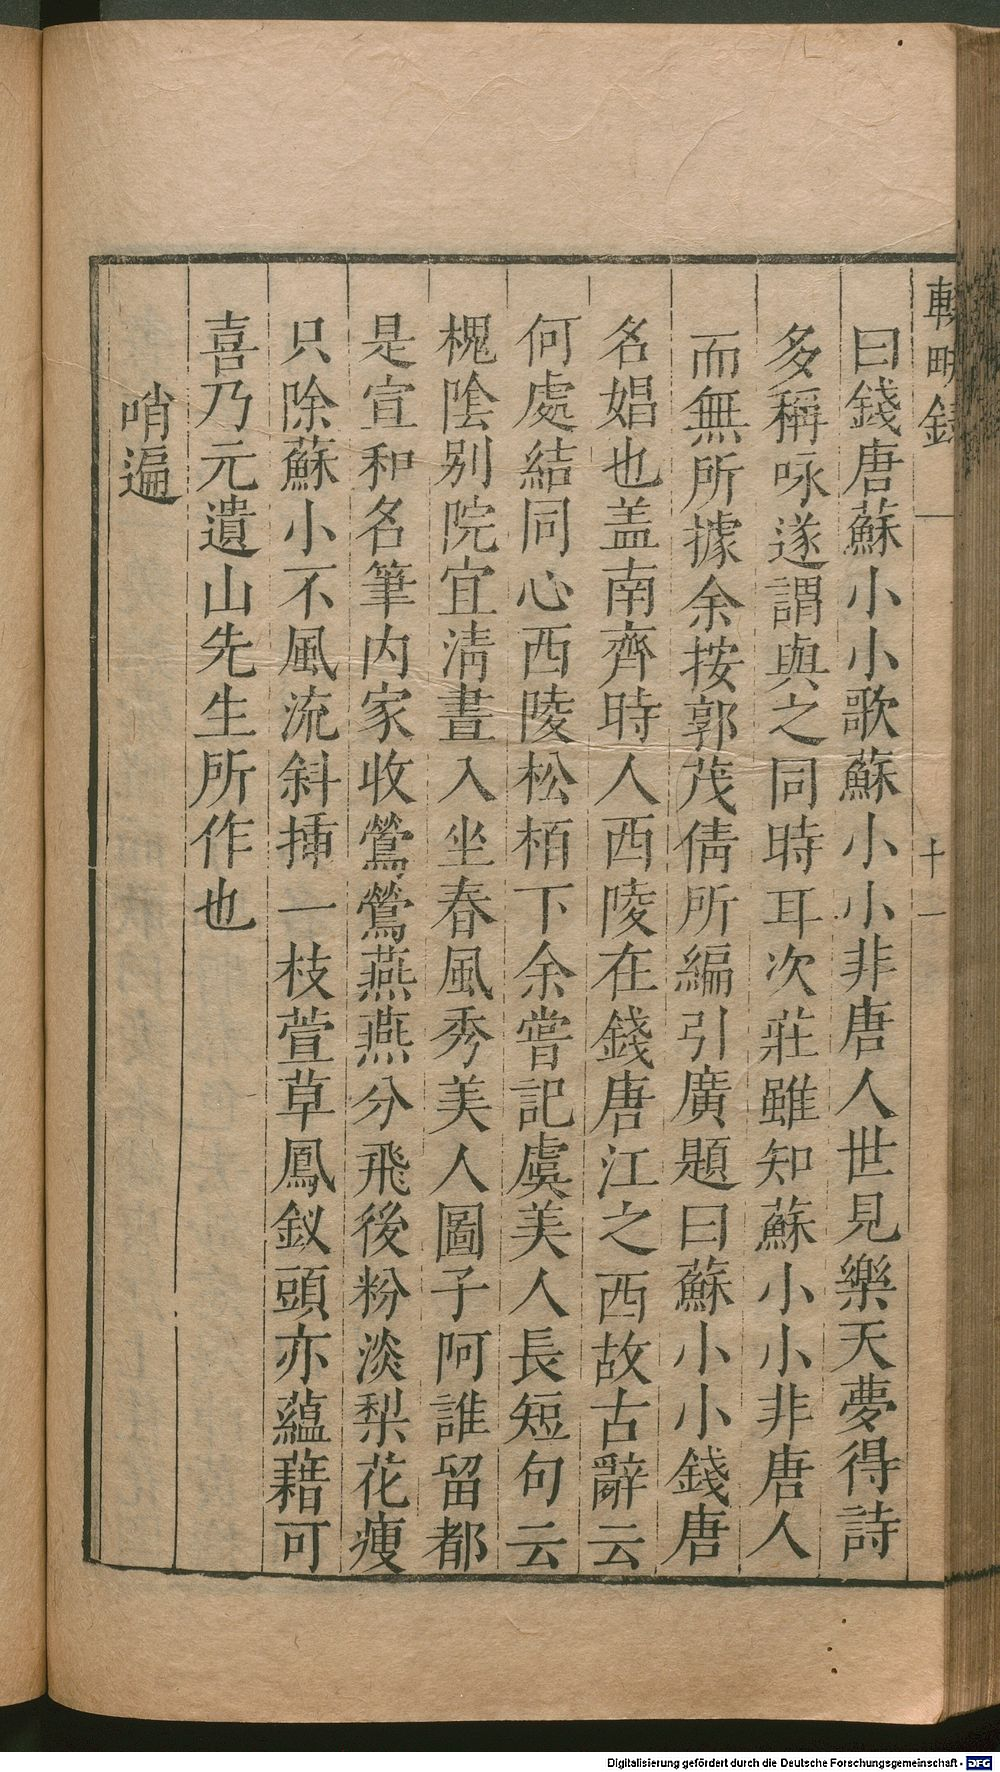 輟畊錄
十一
曰錢唐蘇小小歌蘇小小非唐人世見樂天夢得詩
多稱咏遂謂與之同時耳次莊雖知蘇小小非唐人
而無所據余按郭茂倩所編引廣題曰蘇小小錢唐
名娼也盖南齊時人西陵在錢唐江之西故古辭云
何處結同心西陵松栢下余嘗記虞美人長短句云
槐陰別院宜清晝入坐春風秀美人圖子阿誰留都
是宣和名筆内家收鶯鶯燕燕分飛後粉淡梨花瘦
只除蘇小不風流斜揷一枝萱草鳳釵頭亦蘊藉可
喜乃元遺山先生所作也
哨遍
Digitalisierung gefördert durch die Deutsche Forschungsgemeinschaft - DFG